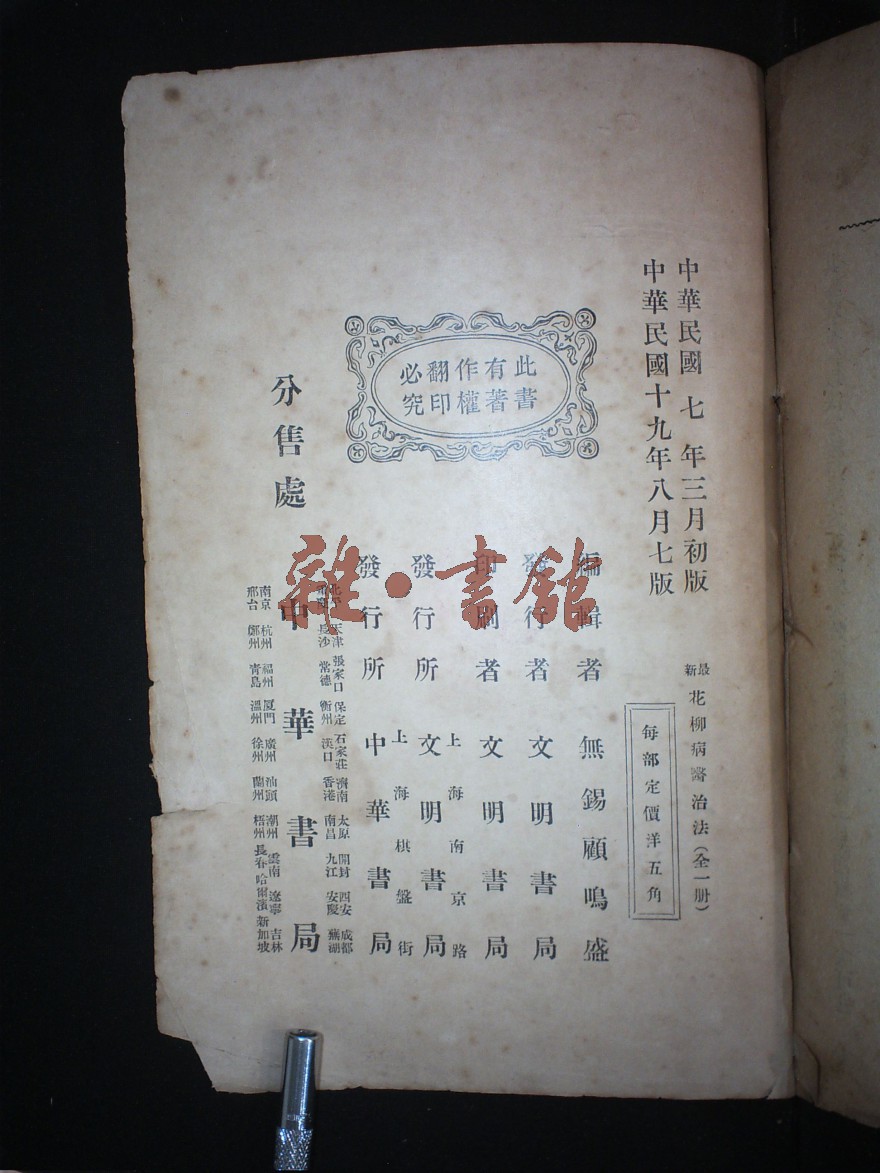 中華民國七年三月初版
中華民國十九年八月七版
最新花柳病醫治法（全一册）
每部定價洋五角
此書
有著
作權
翻印
必究
編輯者 無錫顧鳴盛
發行者 文明書局
印刷者 文明書局
上海南京路
發行所 文明書局
上海棋盤街
發行所 中華書局
分售處
天津 張家口 保定 石家莊 濟南 太原 開封 西安 成都
長沙 常德 衡州 漢口 香港 南昌 九江 安慶 蕪湖
中華書局
南京 杭州 福州 厦門 廣州 汕頭 潮州 雲南 遼寧 吉林
邢台 鄭州 青島 溫州 徐州 蘭州 梧州 長春 哈爾濱 新加坡
雜·書館